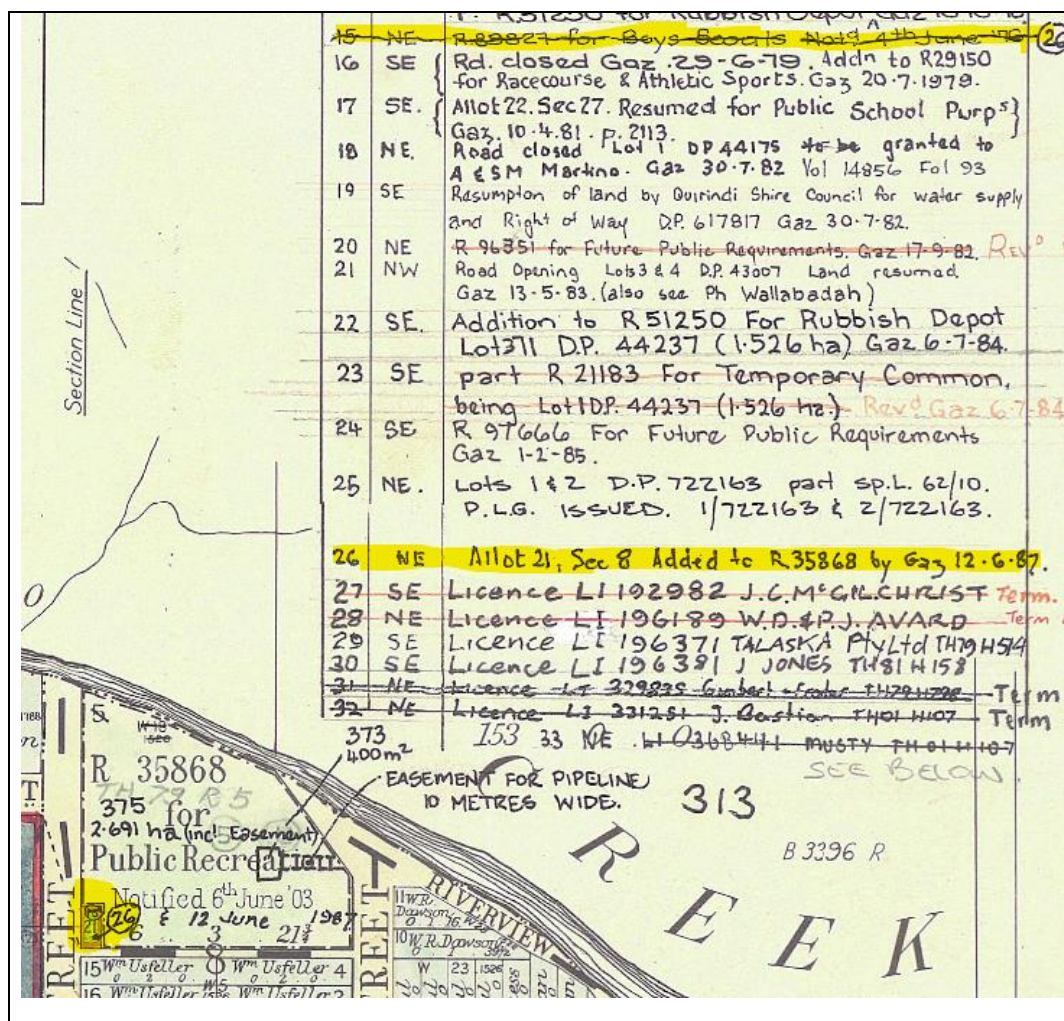 R51250 for Rubbish Depot Gaz
15 NE R 89827 for Boys Scouts Notd 4th June '76
16 SE Rd. closed Gaz. 29-6-79. Addn to R29150
for Racecourse & Athletic Sports. Gaz 20.7.1979.
17 SE. Allot 22. Sec 27. Resumed for Public School Purps
Gaz. 10.4.81. p. 2113.
18 NE. Road closed Lot 1 DP 44175 to be granted to
A & SM Martino. Gaz 30.7.82 Vol 14856 Fol 93
19 SE Resumption of land by Quirindi Shire Council for water supply
and Right of Way D.P. 617817 Gaz 30-7-82.
20 NE R 96351 for Future Public Requirements. Gaz 17-9-82. Revd
21 NW Road Opening Lots 3 & 4 D.P. 43007 Land resumed
Gaz 13-5-83. (also see Ph Wallabadah)
22 SE. Addition to R 51250 For Rubbish Depot
Lot 371 D.P. 44237 (1.526 ha) Gaz 6-7-84.
23 SE part R 21183 For Temporary Common,
being Lot 1 DP. 44237 (1.526 ha.) Revd Gaz 6-7-84
24 SE R 97666 For Future Public Requirements
Gaz 1-2-85.
25 NE. Lots 1 & 2 D.P. 722163 part sp.L. 62/10.
P.L.G. ISSUED. 1/722163 & 2/722163.
26 NE Allot 21, Sec 8 Added to R 35868 by Gaz 12.6.87.
27 SE Licence LI 192982 J.C. McGILCHRIST Term.
28 NE Licence LI 196189 W.D. & P.J. AVARD Term
29 SE Licence LI 196371 TALASKA Pty Ltd TH79 H514
30 SE Licence LI 196381 J JONES TH81 H158
31 NE Licence LI Term
32 NE Licence LI 331251 J. Bastian TH01 H107 Term
153 33 NE LI 0368441 MUSTY TH 01 H 107
SEE BELOW.
Section Line
373
400m²
EASEMENT FOR PIPELINE
10 METRES WIDE.
313
B 3396 R
CREEK
R 35868
TH 79 R 5
375 for
2.691 ha (incl Easement)
Public Recreation
Notified 6th June '03
26 & 12 June 1987
21
6 3 21¾
8
RIVERVIEW
STREET
STREET
11 W.R. Dawson
0 1 16
10 W.R. Dawson
15 Wm Usfeller Wm Usfeller 4
0 2 0
16 Wm Usfeller Wm Usfeller 3
W 23 1526